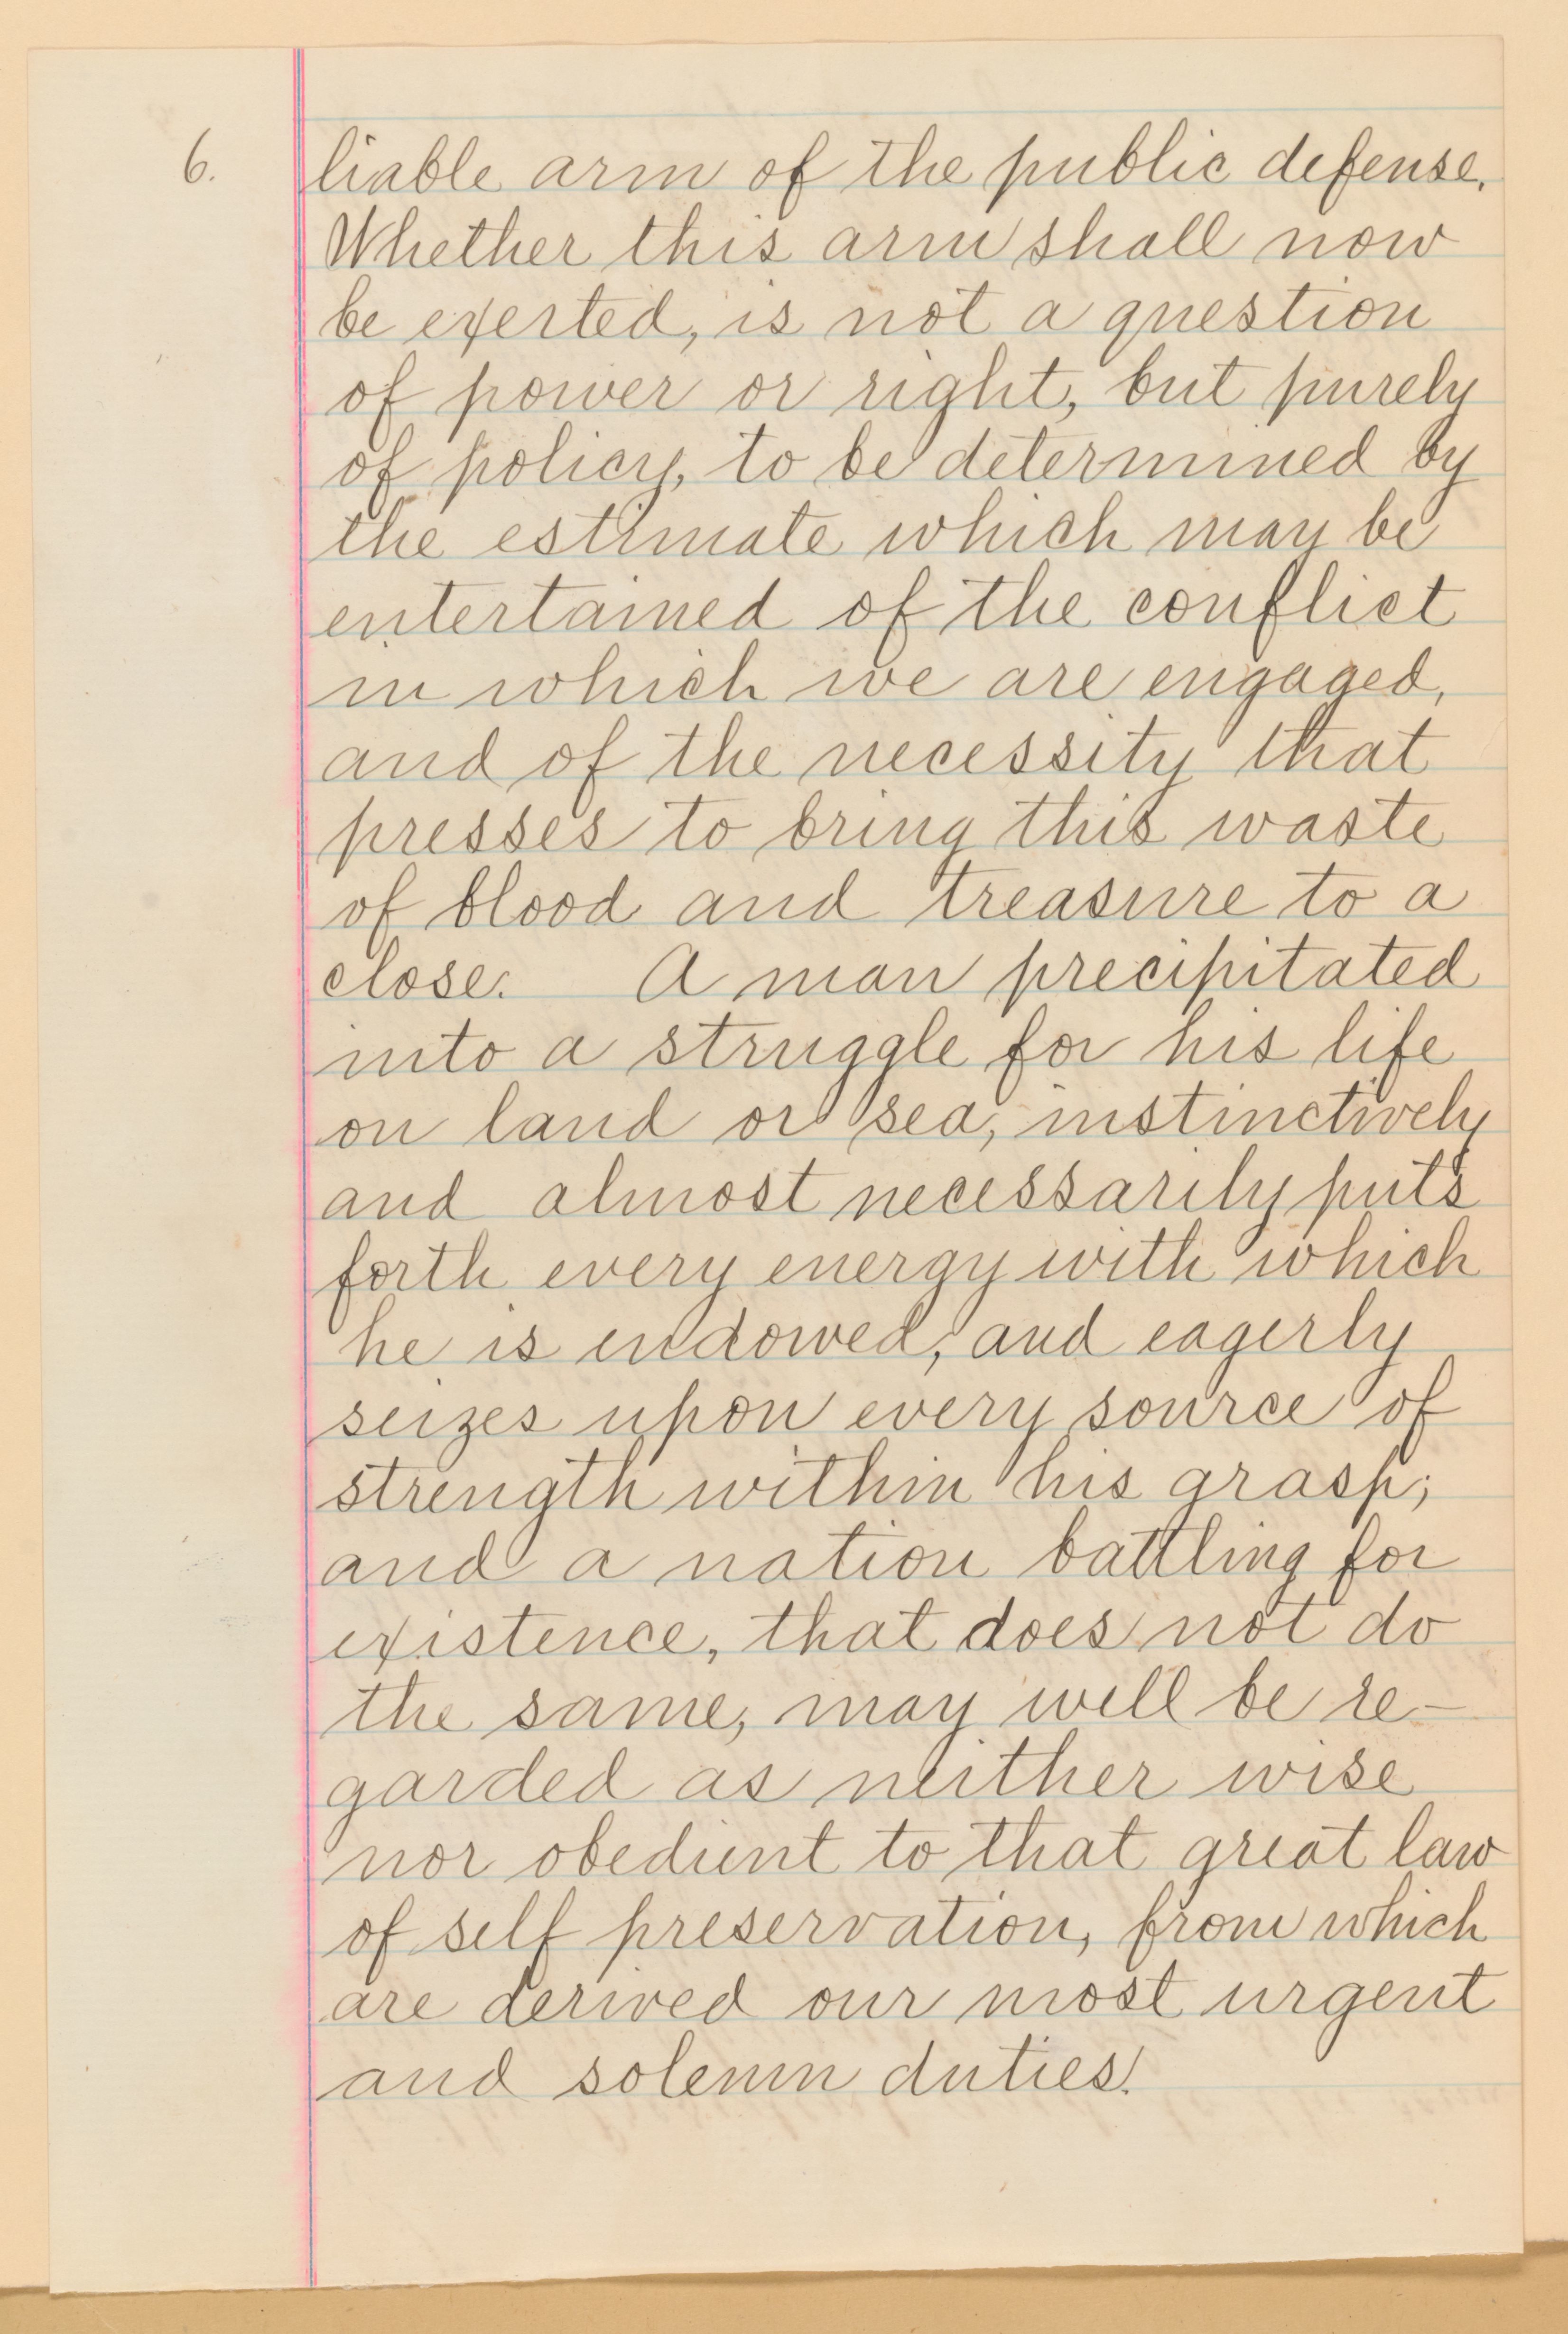 6.
liable arm of the public defense.
Whether this arm shall now
be exerted, is not a question
of power or right, but purely
of policy, to be determined by
the estimate which may be
entertained of the conflict
in which we are engaged,
and of the necessity that
presses to bring this waste
of blood and treasure to a
close. A man precipitated
into a struggle for his life
on land or sea, instinctively
and almost necessarily puts
forth every energy with which
he is endowed, and eagerly
seizes upon every source of
strength within his grasp;
and a nation battling for
existence, that does not do
the same, may well be re-
garded as neither wise
nor obedient to that great law
of self preservation, from which
are derived our most urgent
and solemn duties.